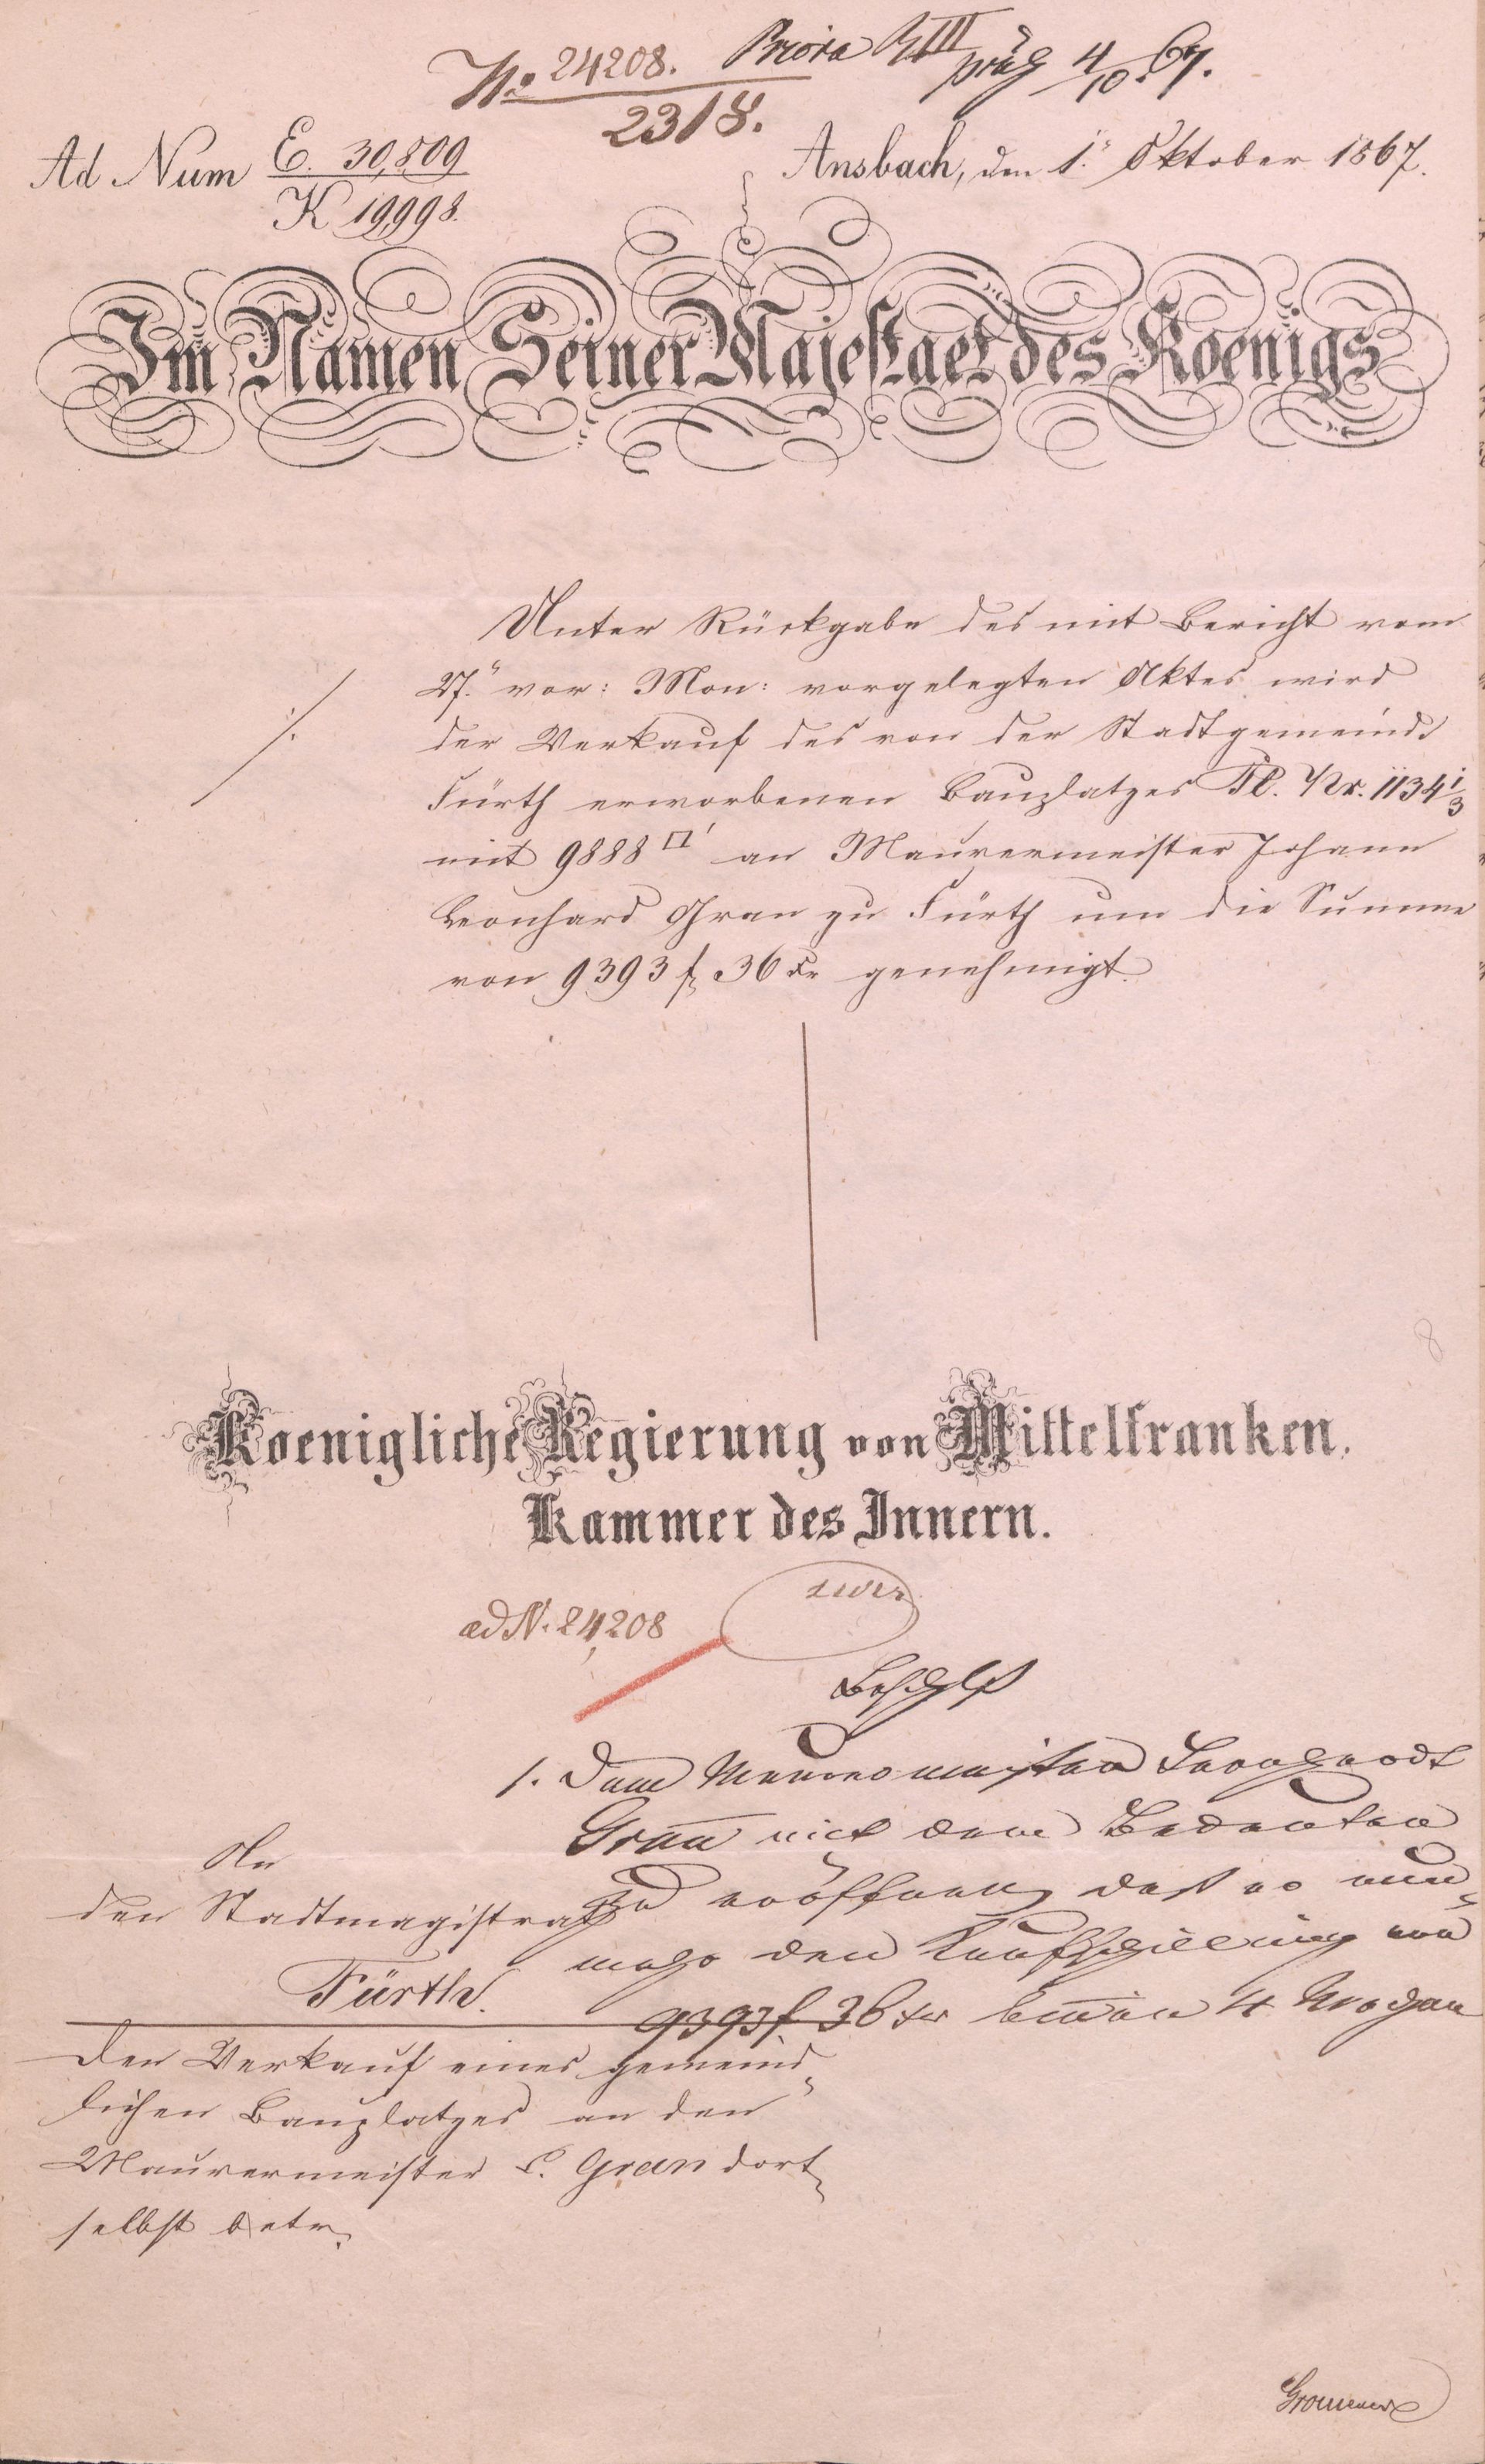 No 24208. Priora R III präs 4/10. 67.
2318.
Ad Num E. 30,809 Ansbach, den 1." Oktober 1867.
K 19998.
Im Namen Seiner Majestaet des Koenigs
Unter Rückgabe des mit Bericht vom
27." vor: Mon: vorgelegten Aktes wird
der Verkauf des von der Stadtgemeinde
Fürth erworbenen Bauplatzes Pl. Nr. 1134 1/3
mit 9888 □' an Maurermeister Johann
Leonhard Gran zu Fürth um die Summe
von 9393 f 36 xr genehmigt.
Koenigliche Regierung von Mittelfranken,
Kammer des Innern.
ad N. 24,208
Beschluß
1. Dem Maurermeister Leonhardt
Grau mit dem Bedeuten
zu eröffnen, daß er nun-
mehr den Kaufschilling von
9393 f. 36 xr binnen 4 Wochen
An
den Stadtmagistrat
Fürth.
Den Verkauf eines gemeind-
lichen Bauplatzes an den
Maurermeister L. Gran dort-
selbst betr.